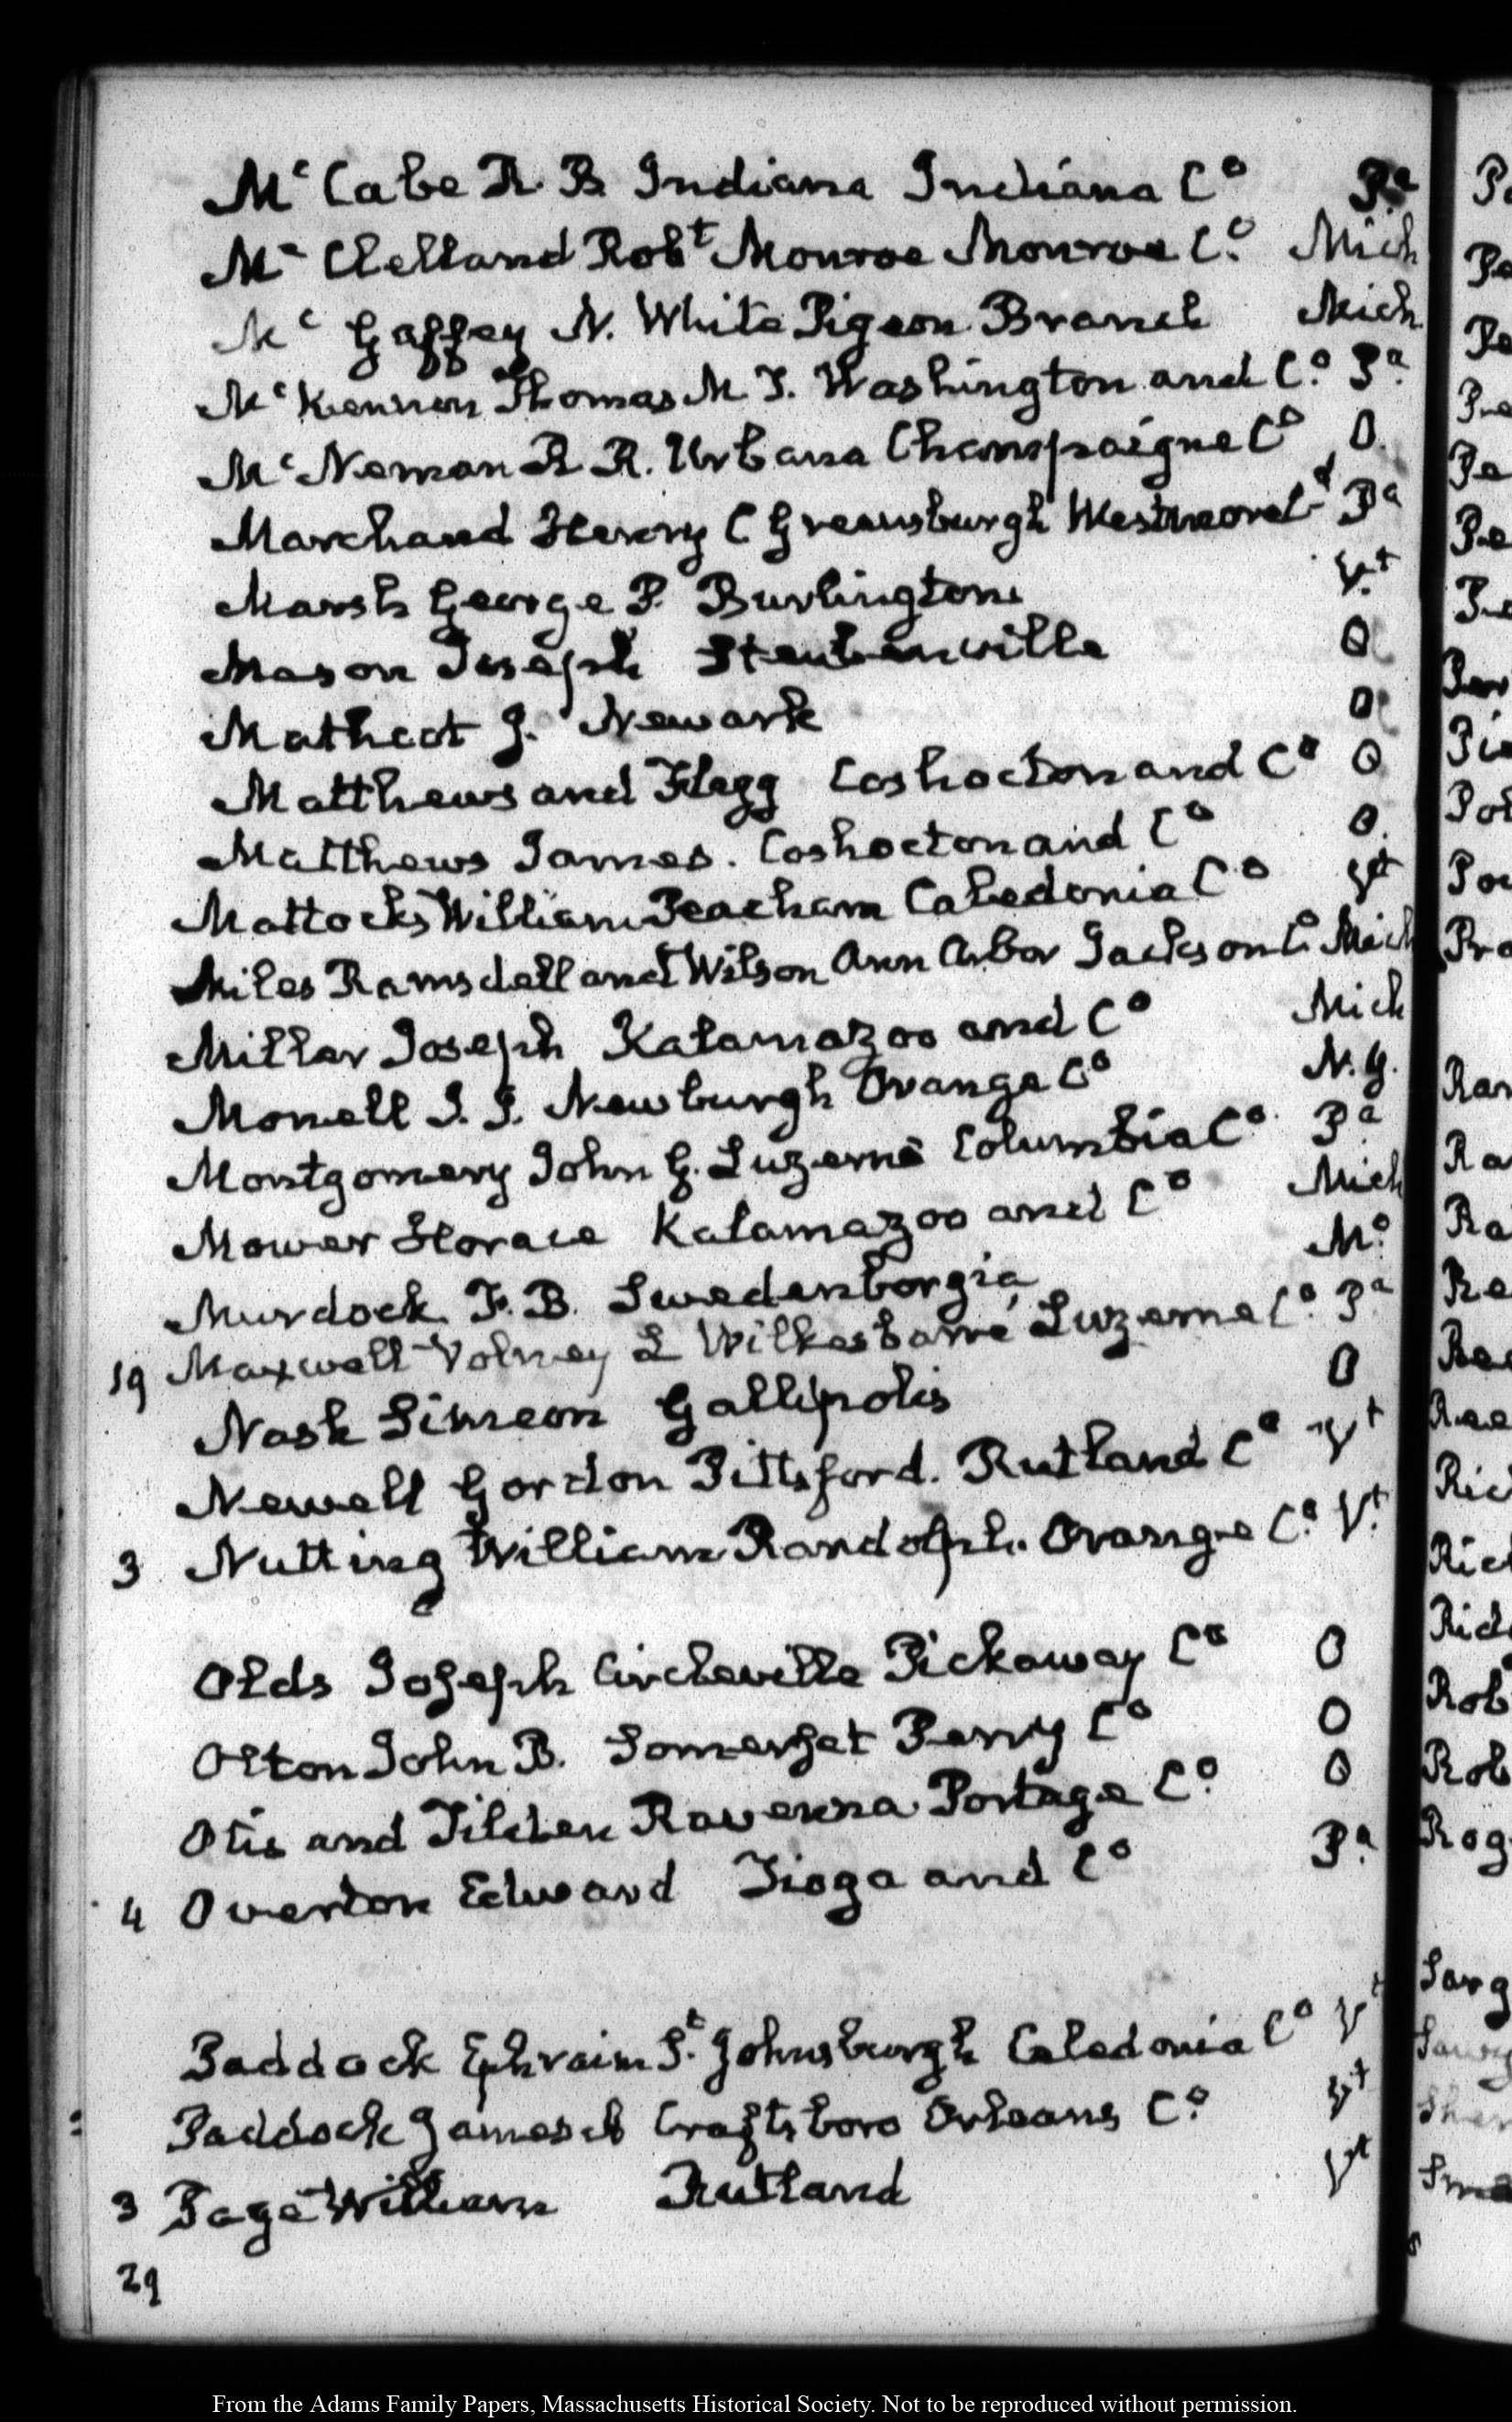 Mc Cabe R. B Indiana Indiana Co Pa
Mc Clelland Robt Monroe Monroe Co. Mich
Mc Gaffey N. White Pigeon Branch Mich.
Mc Kennen Thomas M T. Washington and Co. Pa.
Mc Neman R R. Urbana Champaigne Co O.
Marchand Henry C Greensburgh Westmoreld Pa
Marsh George P. Burlington Vt
Mason Joseph Steubenville O
Matheot J. Newark O
Matthews and Flagg Coshocton and Co O
Matthews James. Coshocton and Co O.
Mattocks William Peacham Caledonia Co Vt
Miles Ramsdell and Wilson Ann Arbor Jackson Co Mich
Millar Joseph Kalamazoo and Co Mich
Monell J. J. Newburgh Orange Co N.Y.
Montgomery John G. Luzerne Columbia Co. Pa
Mower Horace Kalamazoo and Co Mich
Murdock F. B. Swedenborgia Mo.
19 Maxwell Volney L Wilkesbarré Luzerne Co. Pa
Nash Simeon Gallipolis O
Newell Gordon Pittsford. Rutland Co Vt
3 Nutting William Randolph. Orange Co. Vt.
Olds Joseph Circleville Pickaway Co O
Olton John B. Somerset Perry Co O
Otis and Tilden Ravenna Portage Co. O
4 Overton Edward Tioga and Co Pa.
Paddock Ephraim St. Johnsburgh Caledonia Co Vt
Paddock James Craftsboro Orleans Co. Vt
3 Page William Rutland Vt
29
From the Adams Family Papers, Massachusetts Historical Society. Not to be reproduced without permission.